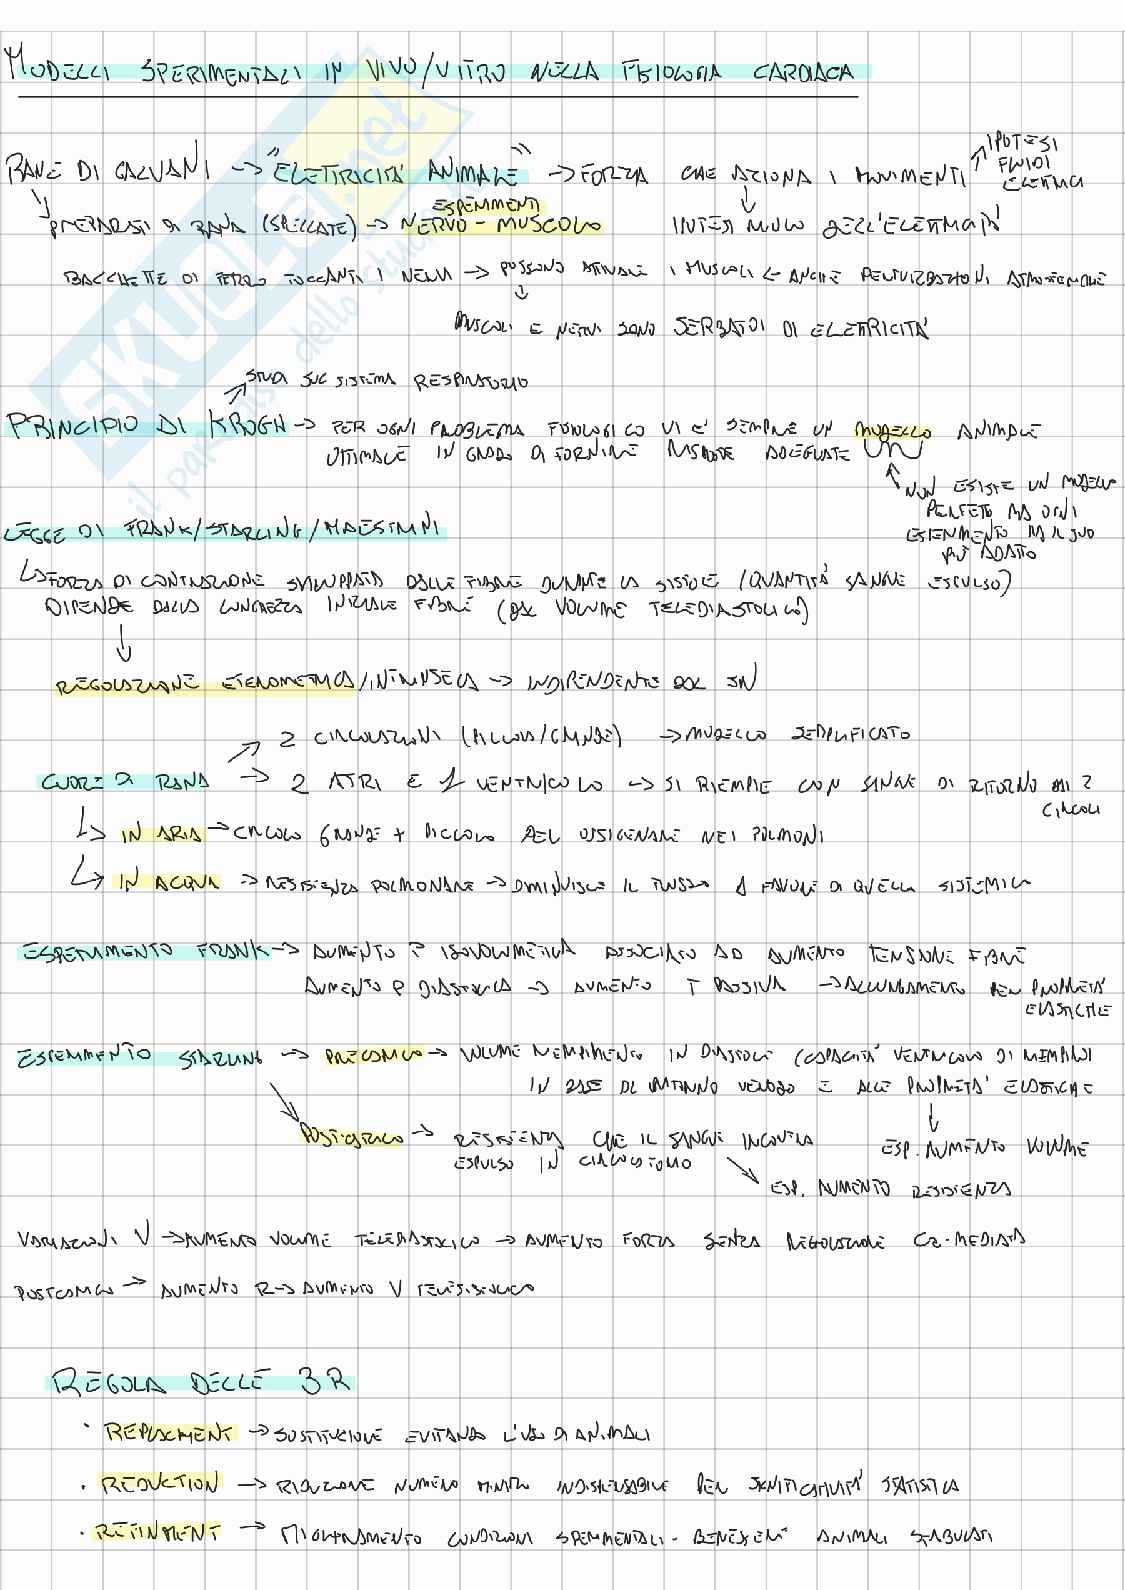 MODELLI SPERIMENTALI IN VIVO/VITRO NELLA FISIOLOGIA CARDIACA
RANE DI GALVANI → "ELETTRICITÀ ANIMALE" → FORZA CHE AZIONA I MOVIMENTI ↗ IPOTESI FLUIDI ELETTRICI
PREPARATI DI RANA (SPELLATE) → ESPERIMENTI NERVO - MUSCOLO DELL'ELETTRICITÀ
BACCHETTE DI FERRO TOCCANTI I NERVI → POSSONO ATTIVARE I MUSCOLI ← ANCHE PERTURBAZIONI ATMOSFERICHE
MUSCOLI E NERVI SONO SERBATOI DI ELETTRICITÀ
STUDI SUL SISTEMA RESPIRATORIO
PRINCIPIO DI KROGH → PER OGNI PROBLEMA FISIOLOGICO VI È SEMPRE UN MODELLO ANIMALE
OTTIMALE IN GRADO DI FORNIRE RISPOSTE ADEGUATE
NON ESISTE UN MODELLO
PERFETTO MA OGNI
ESPERIMENTO HA IL SUO
PIÙ ADATTO
LEGGE DI FRANK/STARLING/MAESTRINI
FORZA DI CONTRAZIONE SVILUPPATA DALLE FIBRE DURANTE LA SISTOLE (QUANTITÀ SANGUE ESPULSO)
DIPENDE DALLA LUNGHEZZA INIZIALE FIBRE (DAL VOLUME TELEDIASTOLICO)
REGOLAZIONE ETEROMETRICA/INTRINSECA → INDIPENDENTE DAL SN
2 CIRCOLAZIONI (PICCOLA/GRANDE) → MODELLO SEMPLIFICATO
CUORE DI RANA → 2 ATRI E 1 VENTRICOLO → SI RIEMPIE CON SANGUE DI RITORNO DAI 2 CIRCOLI
IN ARIA → CIRCOLO GRANDE + PICCOLO PER OSSIGENARE NEI POLMONI
IN ACQUA → RESISTENZA POLMONARE → DIMINUISCE IL FLUSSO A FAVORE DI QUELLA SISTEMICA
ESPERIMENTO FRANK → AUMENTO P ISOVOLUMETRICA ASSOCIATO AD AUMENTO TENSIONE FIBRE
AUMENTO P DIASTOLICA → AUMENTO T PASSIVA → ALLUNGAMENTO PER PROPRIETÀ ELASTICHE
ESPERIMENTO STARLING → PRECARICO → VOLUME RIEMPIMENTO IN DIASTOLE (CAPACITÀ VENTRICOLO DI RIEMPIRSI
IN BASE AL RITORNO VENOSO E ALLE PROPRIETÀ ELASTICHE
POSTCARICO → RESISTENZA CHE IL SANGUE INCONTRA
ESPULSO IN CIRCOLO
ESP. AUMENTO VOLUME
ESP. AUMENTO RESISTENZA
VARIAZIONI V → AUMENTO VOLUME TELEDIASTOLICO → AUMENTO FORZA SENZA REGOLAZIONE Ca-MEDIATA
POSTCARICO → AUMENTO R → AUMENTO V TELESISTOLICO
REGOLA DELLE 3R
· REPLACMENT → SOSTITUZIONE EVITANDO L'USO DI ANIMALI
· REDUCTION → RIDUZIONE NUMERO MINIMO INDISPENSABILE PER SIGNIFICATIVITÀ STATISTICA
· REFINMENT → MIGLIORAMENTO CONDIZIONI SPERIMENTALI - BENESSERE ANIMALI STABULATI
SKUOLA.net
il paradiso dello studente